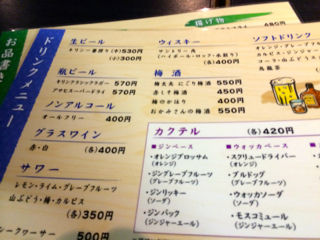 お品書き
揚げ物
480円
ドリンクメニュー
生ビール
キリン一番搾り(中)530円
(小)300円
瓶ビール
キリンクラシックラガー 570円
アサヒスーパードライ 570円
ノンアルコール
オールフリー 400円
グラスワイン
赤・白 (各)400円
サワー
レモン・ライム・グレープフルーツ
山ぶどう・梅・カルピス
(各)350円
500円
ウィスキー
サントリー 角
(ハイボール・ロック・水割り)
(各)400円
梅酒
梅太夫 にごり梅酒 550円
赤しそ梅酒 450円
梅のかほり 400円
おかみさんの梅酒 550円
ソフトドリンク
オレンジ・グレープフルーツ
烏龍茶
カクテル (各)420円
■ジンベース
・オレンジブロッサム
(オレンジ)
・ジングレープフルーツ
(グレープフルーツ)
・ジンリッキー
(ソーダ)
・ジンバック
(ジンジャーエール)
■ウォッカベース
・スクリュードライバー
(オレンジ)
・ブルドッグ
(グレープフルーツ)
・ウォッカソーダ
(ソーダ)
・モスコミュール
(ジンジャーエール)